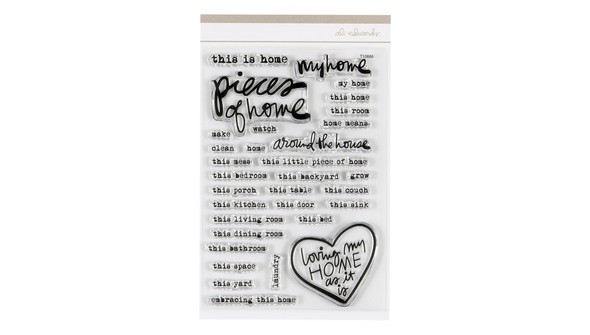 ali edwards
this is home
my home
pieces
of home
my home
this home
this room
home means
make
watch
clean
home
around the house
this mess
this little piece of home
this bedroom
this backyard
grow
this porch
this table
this couch
this kitchen
this door
this sink
this living room
this bed
this dining room
this bathroom
this space
laundry
this yard
embracing this home
loving my
HOME
as it
is